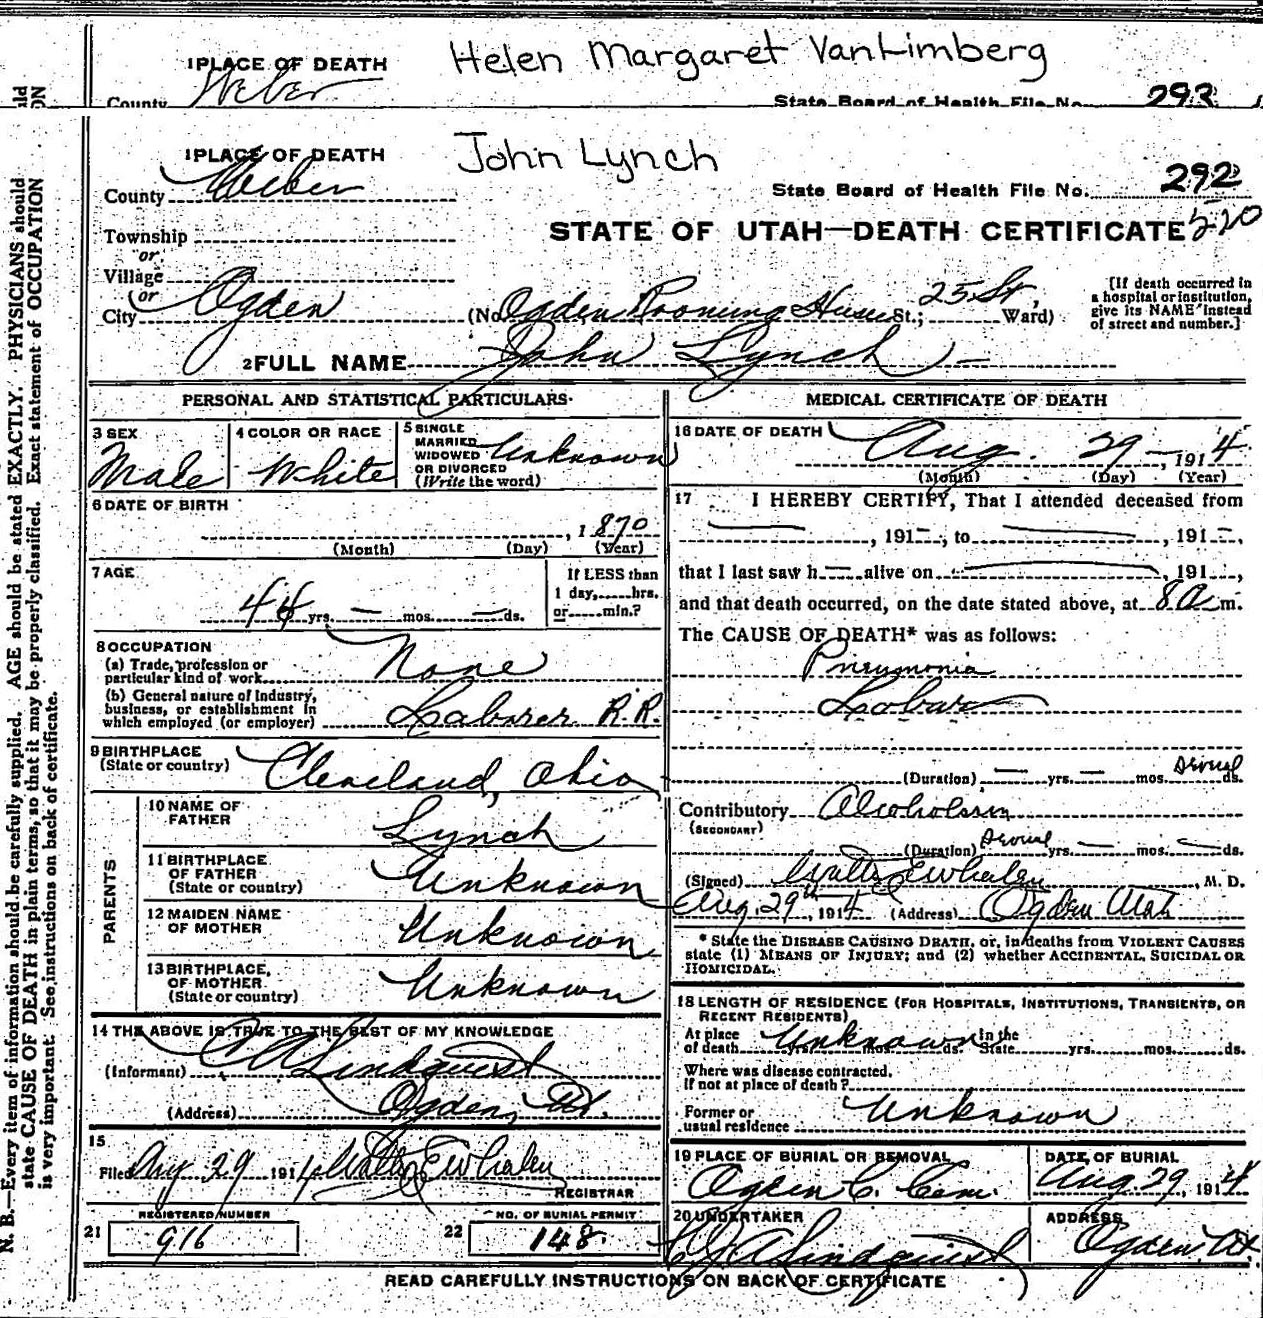 1 PLACE OF DEATH Helen Margaret VanLimberg
County Weber State Board of Health File No. 293
1 PLACE OF DEATH John Lynch
County Weber State Board of Health File No. 292
STATE OF UTAH—DEATH CERTIFICATE 520
Township
or
Village
or
City Ogden (No Ogden Rooming House 25 St. St.; Ward)
[If death occurred in
a hospital or institution,
give its NAME instead
of street and number.]
2 FULL NAME John Lynch
PERSONAL AND STATISTICAL PARTICULARS
3 SEX
Male
4 COLOR OR RACE
White
5 SINGLE
MARRIED
WIDOWED
OR DIVORCED
(Write the word)
Unknown
6 DATE OF BIRTH
, 1870
(Month) (Day) (Year)
7 AGE
44 yrs. — mos. — ds.
If LESS than
1 day, hrs.
or min.?
8 OCCUPATION
(a) Trade, profession or
particular kind of work None
(b) General nature of Industry,
business, or establishment in
which employed (or employer) Laborer R.R.
9 BIRTHPLACE
(State or country) Cleveland, Ohio
PARENTS
10 NAME OF
FATHER Lynch
11 BIRTHPLACE
OF FATHER
(State or country) Unknown
12 MAIDEN NAME
OF MOTHER Unknown
13 BIRTHPLACE
OF MOTHER
(State or country) Unknown
14 THE ABOVE IS TRUE TO THE BEST OF MY KNOWLEDGE
(Informant) Lindquist
(Address) Ogden, Ut.
15
Filed Aug 29 1914 Walter E Whalen
REGISTRAR
21 REGISTERED NUMBER
916
22 NO. OF BURIAL PERMIT
148
MEDICAL CERTIFICATE OF DEATH
16 DATE OF DEATH
Aug. 29 — , 1914
(Month) (Day) (Year)
17 I HEREBY CERTIFY, That I attended deceased from
— , 191—, to — , 191—,
that I last saw h— alive on — , 191 ,
and that death occurred, on the date stated above, at 8 a m.
The CAUSE OF DEATH* was as follows:
Pneumonia
Lobar
(Duration) — yrs. — mos. Several ds.
Contributory Alcoholism
(SECONDARY)
(Duration) Several yrs. — mos. — ds.
(Signed) Walter E Whalen , M. D.
Aug. 29th, 1914 (Address) Ogden Utah
* State the DISEASE CAUSING DEATH, or, in deaths from VIOLENT CAUSES
state (1) MEANS OF INJURY; and (2) whether ACCIDENTAL, SUICIDAL OR
HOMICIDAL.
18 LENGTH OF RESIDENCE (FOR HOSPITALS, INSTITUTIONS, TRANSIENTS, OR
RECENT RESIDENTS)
At place
of death Unknown yrs. mos. ds. In the
State yrs. mos. ds.
Where was disease contracted.
If not at place of death?
Former or
usual residence Unknown
19 PLACE OF BURIAL OR REMOVAL
Ogden C. Cem.
DATE OF BURIAL
Aug 29, 1914
20 UNDERTAKER
Lindquist
ADDRESS
Ogden Ut.
READ CAREFULLY INSTRUCTIONS ON BACK OF CERTIFICATE
N. B.—Every item of information should be carefully supplied. AGE should be stated EXACTLY. PHYSICIANS should
state CAUSE OF DEATH in plain terms, so that it may be properly classified. Exact statement of OCCUPATION
is very important. See instructions on back of certificate.